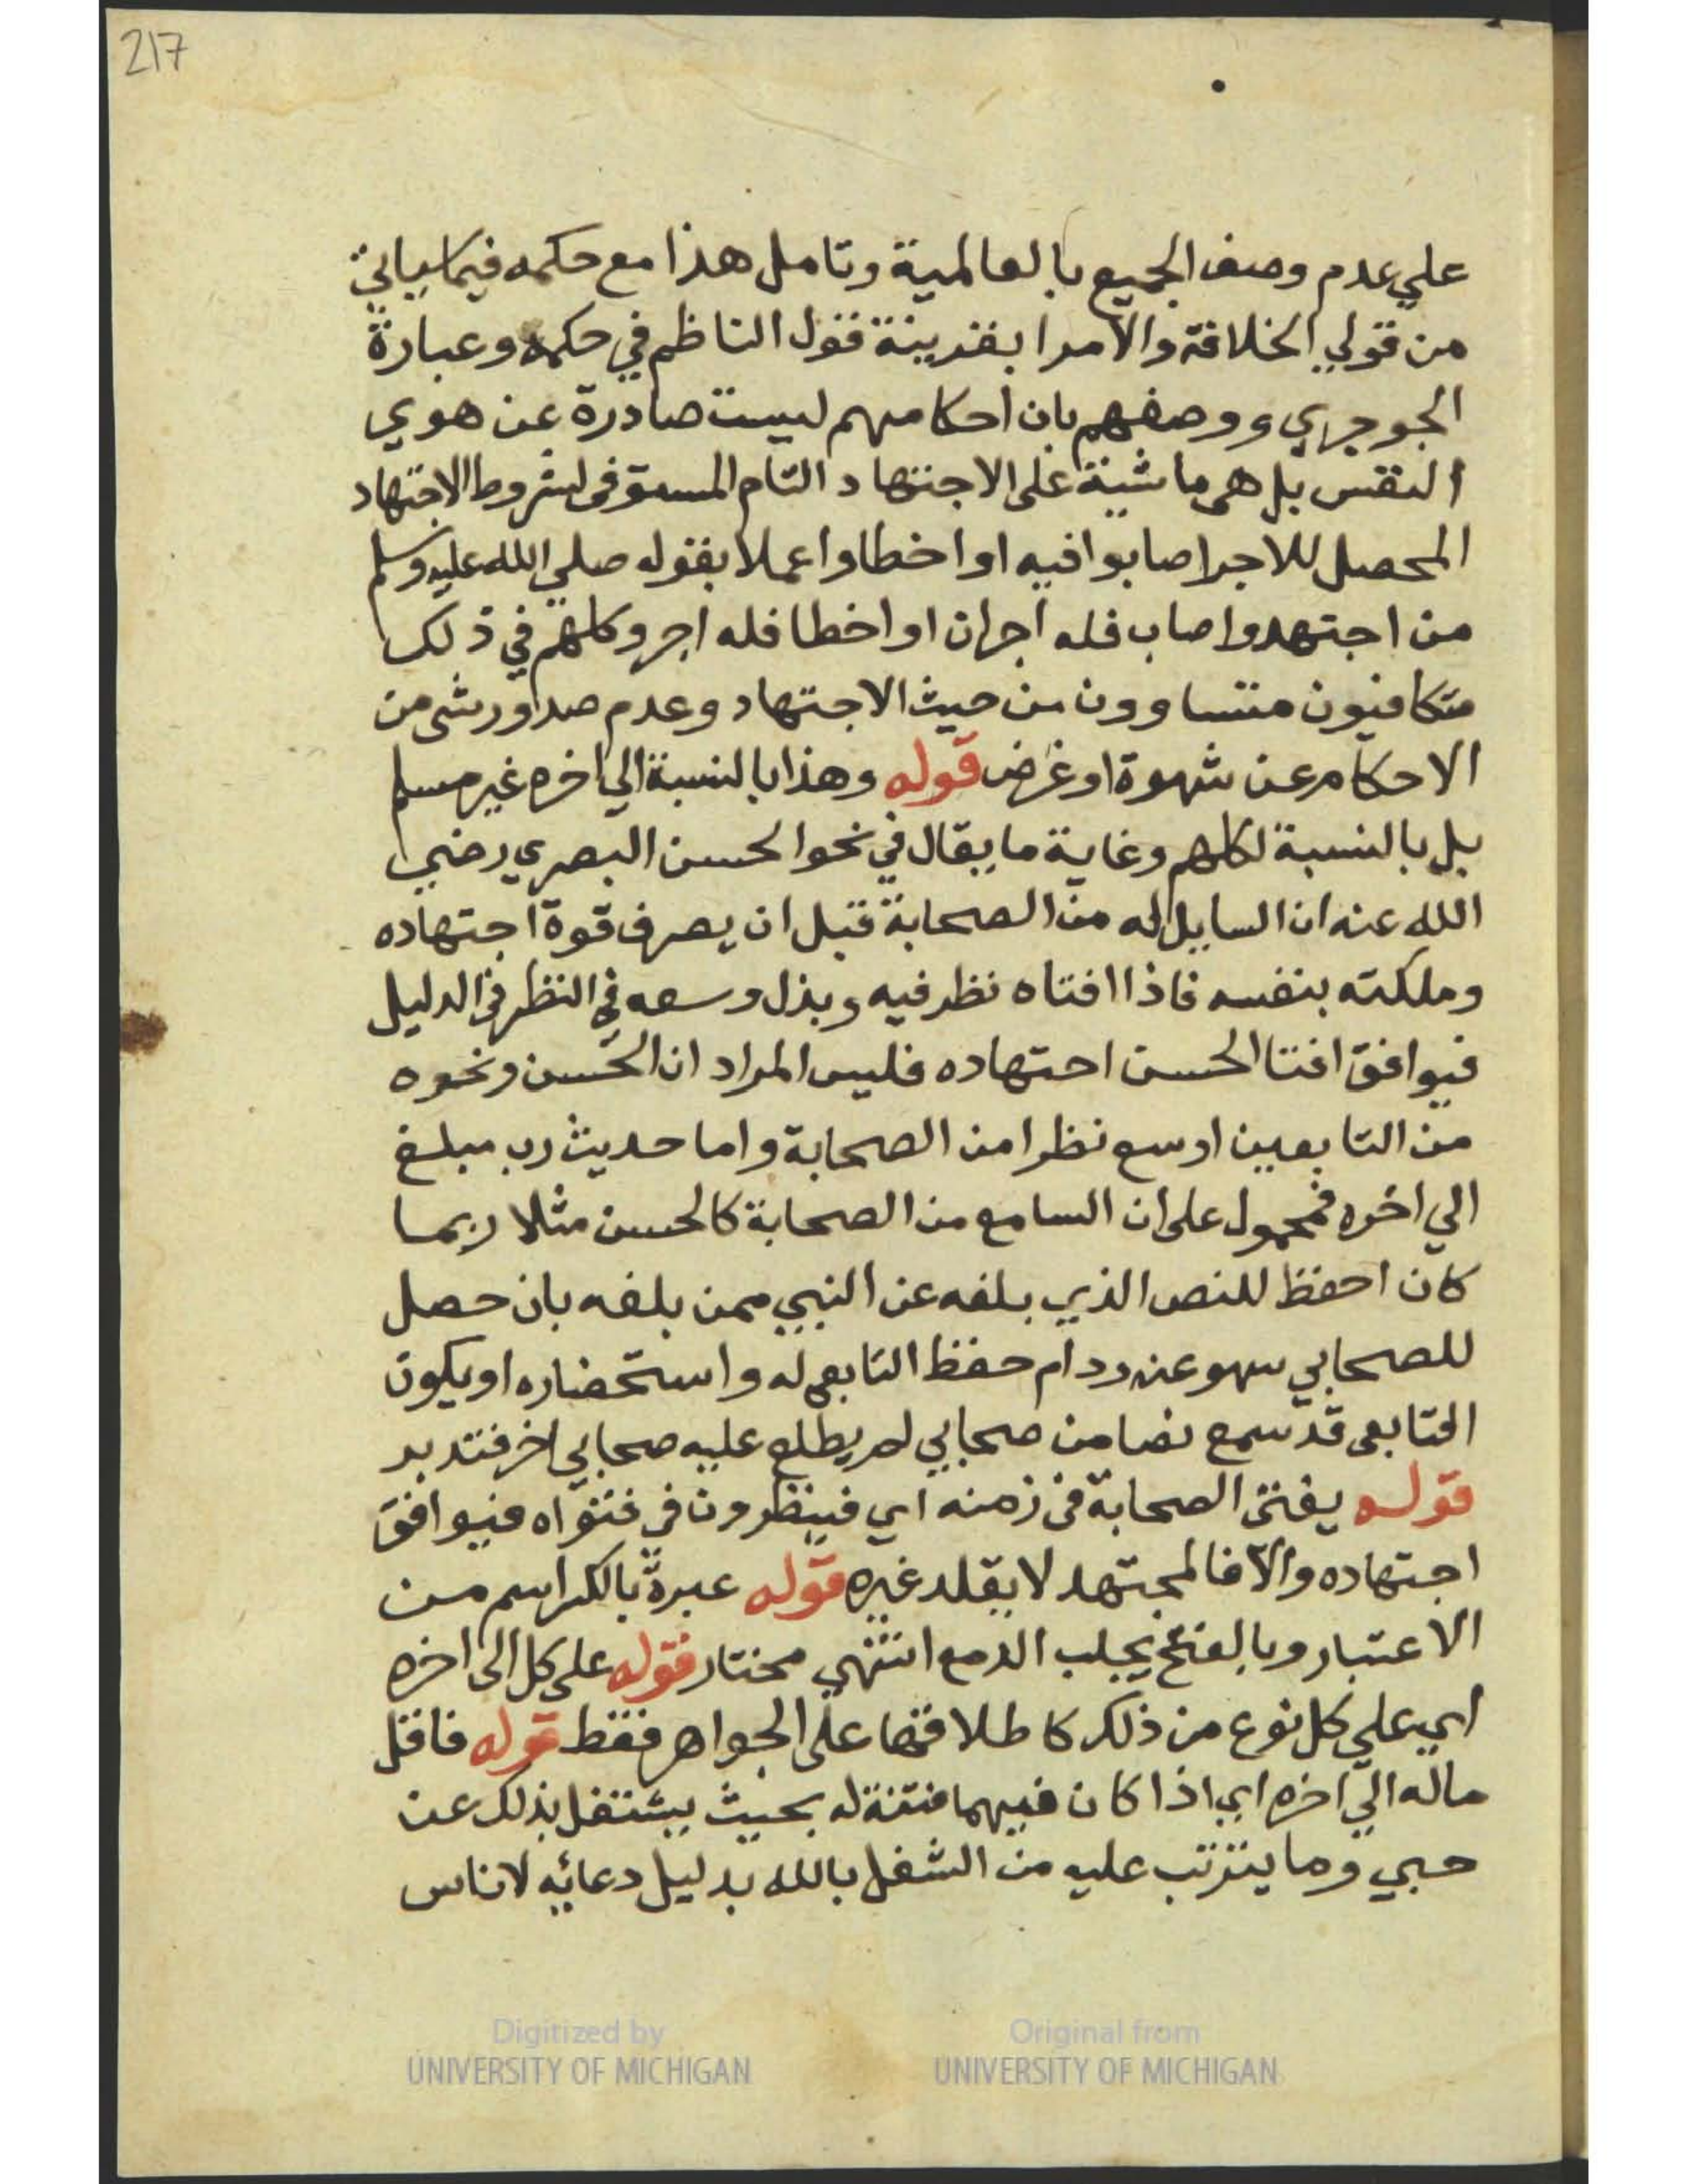 217
علي عدم وصف الجميع بالعالمية وتامل هذا مع حكمه فيما سياتي
من قولي الخلافة والامرا بقرينة قول الناظم في حكمه وعبارة
الجوجري ووصفهم بان احكامهم ليست صادرة عن هوي
النفس بل هي ماشية على الاجتهاد التام المستوفى لشروط الاجتهاد
المحصل للاجر اصابوا فيه او اخطاوا عملا بقوله صلي الله عليه وسلم
من اجتهد واصاب فله اجران او اخطا فله اجر وكلهم في ذلك
متكافيون متساوون من حيث الاجتهاد وعدم صدور شي من
الاحكام عن شهوة او غرض قوله وهذا بالنسبة الي اخره غير مسلم
بل بالنسبة لكلهم وغاية ما يقال في نحو الحسن البصري رضي
الله عنه ان السايل له من الصحابة قبل ان يصرف قوة اجتهاده
وملكته بنفسه فاذا افتاه نظر فيه وبذل وسعه في النظر في الدليل
فيوافق افتا الحسن اجتهاده فليس المراد ان الحسن ونحوه
من التابعين اوسع نظرا من الصحابة واما حديث رب مبلغ
الي اخره فمحمول على ان السامع من الصحابة كالحسن مثلا ربما
كان احفظ للنص الذي بلغه عن النبي ممن بلغه بان حصل
للصحابي سهو عنه ودام حفظ التابعي له واستحضاره او يكون
التابعي قد سمع نصا من صحابي لم يطلع عليه صحابي اخر فتدبر
قوله يفتى الصحابة في زمنه اي فينظرون في فتواه فيوافق
اجتهاده والا فالمجتهد لا يقلد غيره قوله عبرة بالكسر اسم من
الاعتبار وبالفتح تجلب الدمع انتهي مختار قوله على كل الى اخره
اي علي كل نوع من ذلك كاطلاقها على الجواهر فقط قوله فاقل
ماله الي اخره اي اذا كان فيهما فتنة له بحيث يشتغل بذلك عن
حبي وما يترتب عليه من الشغل بالله بدليل دعائه لاناس
Digitized by
UNIVERSITY OF MICHIGAN
Original from
UNIVERSITY OF MICHIGAN